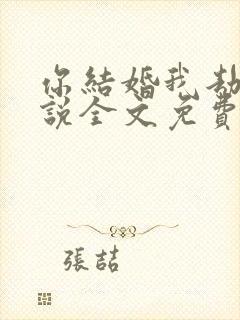 你結婚我劫
說全文免費
張喆